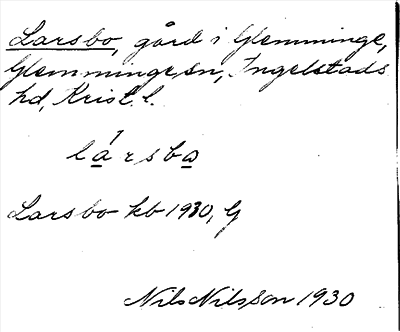 Larsbo, gård i Glemminge,
Glemminge sn, Ingelstads
hd, Krist. l.
lársbo
Larsbo kb 1930, G
Nils Nilsson 1930